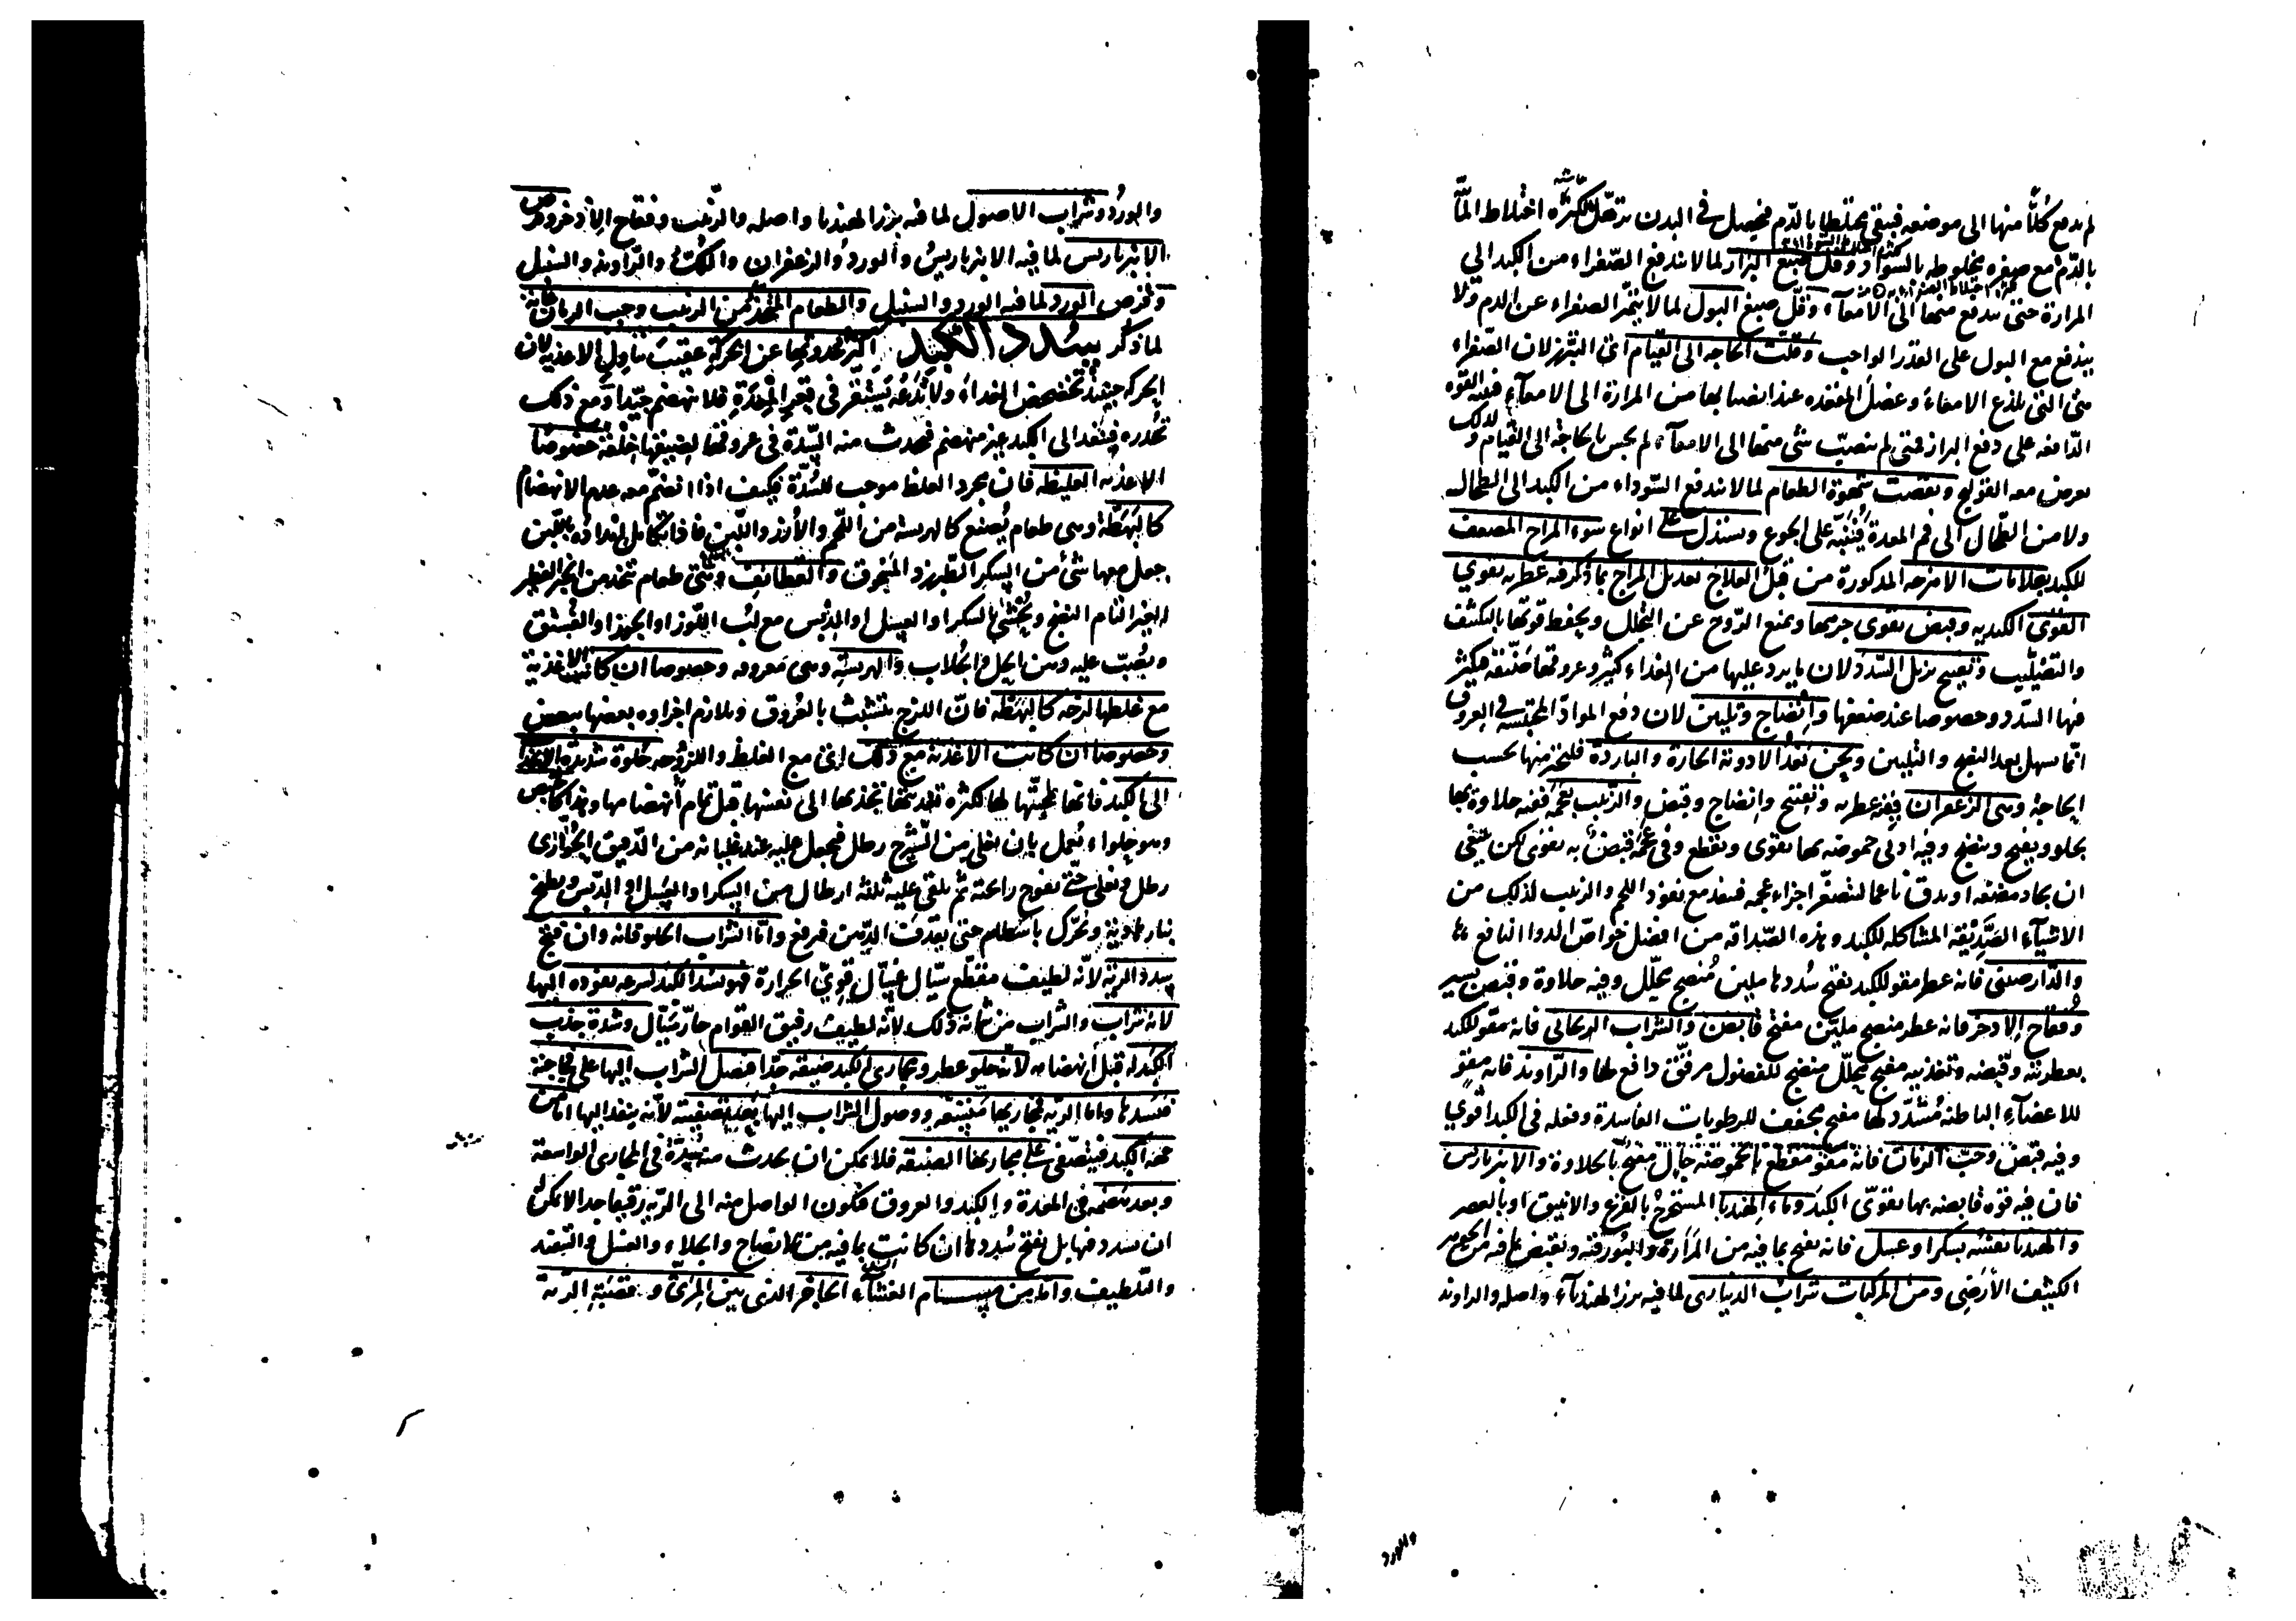 لم يدفع كلًّا منها الى موضعه فيبقى مختلطا بالدّم فيحصل في البدن ترهّل لكثرة اختلاط المآء
بالدّم مع صفرة مخلوطة بالسواد وقل صبغ البراز لما لا يندفع الصّفراء من الكبد الى
المرارة حتى يندفع منها الى الامعآء وقلّ صبغ البول لما لا يتميّز الصفراء عن الدم ولا
يندفع مع البول على القدر الواجب وقلّت الحاجة الى القيام اى التبرز لان الصّفراء
هى التى تلذع الامعاء وعضل المقعده عند انصبابها من المرارة الى الامعآء فتنبه القوّه
الدّافعه على دفع البراز فمتى لم ينصبّ شئ منها الى الامعآء لم يحس بالحاجة الى القيام ولذلك
يعرض معه القولنج ونقصت شهوة الطعام لما لا يندفع السّوداء من الكبد الى الطحال
ولا من الطّحال الى فم المعدة فينبّه على الجوع ويستدل على انواع سوء المزاج المضعف
للكبد بعلامات الامزجه المذكورة من قبل العلاج تعديل المزاج بما ذكر فيه عطرية تقوي
القوى الكبديه وقبض يقوى جرمها ويمنع الرّوح عن التحلل ويحفظ قوتها بالتكثيف
والتصليب وتفتيح يزيل السّدد لان ما يرد عليها من الغذاء كثير وعروقها ضيّقة فيكثر
فيها السّدد وخصوصا عند ضعفها وانضاج وتليين لان دفع الموادّ المحتبسة فى العروق
انّما يسهل بعد النضج والتليين ونحن نعدّ الادوية الحارة والباردة فليختر منها بحسب
الحاجة وهى الزعفران ففيه عطريه وتفتيح وانضاج وقبض والزّبيب بعجمه ففيه حلاوة بها
يجلو ويفتح وينضج وفيه ادنى حموضه بها يقوى ويقطع وفى عجمه قبض به يقوى لكن ينبغى
ان يجاد مضغه او يدق ناعما لتصغّر اجزاء عجمه فينفذ مع نفوذ اللحم والزبيب لذلك من
الاشيآء الصّديقة المشاكلة للكبد وهذه الصّداقه من افضل خواصّ الدوا النافع لها
والدّارصينى فانه عطر مقو للكبد يفتح سُددها ملين مُنضج محلّل وفيه حلاوة وقبض يسير
وفقّاح الاذخر فانه عطر منضج مليّن مفتح قابض والشراب الريحانى فانه مقو للكبد
بعطريته وقبضه وتغذيته مفتح محلّل منضج للفضول مرقّق دافع لها والرّاوند فانه مقوٍ
للاعضآء الباطنه مُشدّد لها مفتح مجفف للرطوبات الفاسدة وفعله فى الكبد اقوي
وفيه قبض وحبّ الرمان فانه مقوٍ مقطع بالحموضة جالٍ مفتح بالحلاوة والانبرباريس
فان فيه قوة قابضه بها يقوّى الكبد وماء الهندبا المستخرج بالقرع والانبيق او بالعصر
والهندبا نفسه بسكر او عسل فانه يفتح بما فيه من المرارة والبورقيه ويقبض بما فيه من الجوهر
الكثيف الأرضى ومن المركبات شراب الدينارى لما فيه بزر الهندبآء واصله والراوند
والورد
والورد وشراب الاصول لما فيه بزر الهندبا واصله والزّبيب وفقاح الاذخر وقرص
الانبرباريس لما فيه الانبرباريس والورد والزعفران واللكّ والرّاوند والسنبل
وقرص الورد لما فيه الورد والسنبل والطعام المتّخذ من الزبيب وحبّ الرمان فانه
لما ذكر سُدد الكبد اكثر حدوثها عن الحركة عقيب تناول الاغذيه لان
الحركه حينئذ تخضخض الغذاء ولا تدعه يستقر فى قعر المعدة فلا ينهضم جيّدا ومع ذلك
تحدره فينفذ الى الكبد غير منهضم فيحدث منه السّدة فى عروقها لضيقها خلقة خصوصًا
الاغذيه الغليظه فان مجرد الغلظ موجب للسّدّة فكيف اذا انضمّ معه عدم الانهضام
كالبهطّة وهى طعام يُصنع كالهريسة من اللّحم والأرز واللّبن فاذا تكامل اهتراؤه باللّبن
جعل معها شئ من السكر الطبرزد المسحوق والقطائف وهى طعام تتخذ من الخبز الفطير
الغير التام النضج ويحشى بالسكر او العسل او الدّبس مع لبّ اللّوز او الجوز او الفستق
ويصبّ عليه دهن الحل والجلاب والهريسة وهى معروفه وخصوصا ان كانت الاغذية
مع غلظها لزجه كالبهطّه فانّ اللزج يتشبّث بالعروق ويلازم اجزاءه بعضها ببعض
وخصوصا ان كانت الاغذية مع ذلك اى مع الغلظ واللزوجه حلوة شديدة الانجذاب
الى الكبد فانها لمحبّتها لها لكثرة تغذيتها تجذبها الى نفسها قبل تمام انهضامها وهذا كالخبيص
وهو حلواء يُعمل بان يغلى من الشّيرج رطل فيجعل عليه عند غليانه من الدّقيق الحُوّارى
رطل ويغلى حتّى يفوح رائحته ثم يلقى عليه ثلثة ارطال من السكر او العسل او الدّبس ويطبخ
بنار هادية ويُحرّك باسطام حتى يقذف الدّهن فيرفع وامّا الشراب الحلو فانه وان فتح
سدد الرئة لأنّه لطيف مقطّع سيّال غسّال قوىّ الحرارة فهو يسدّ الكبد لسرعة نفوذه اليها
لانه شراب والشراب من شأنه ذلك لانّه لطيف رقيق القوام حارّ سيّال وشدة جذب
الكبد له قبل انهضامه لانه حلو عطر ومجارى الكبد ضيقه جدا فيصل الشراب اليها على فجاجته
فيسدها واما الرئة فمجاريها متّسعة ووصول الشراب اليها بعد تصفيته لأنه ينفذ اليها امّا من
جهة الكبد فيتصفّى على مجاريها الضيقه فلا يمكن ان يحدث منه سُدّة فى المجارى الواسعة
وبعد هضمه فى المعدة والكبد والعروق فيكون الواصل منه الى الرّئة رقيقا جدا لا يمكن
ان يسدد فيها بل يفتح سُددها ان كانت بما فيه من الانضاج والجلاء والغسل والتنفيذ
والتّلطيف وامّا من مسام الغشآء الحاجز الذى بين المرئ وقصبة الرّئة